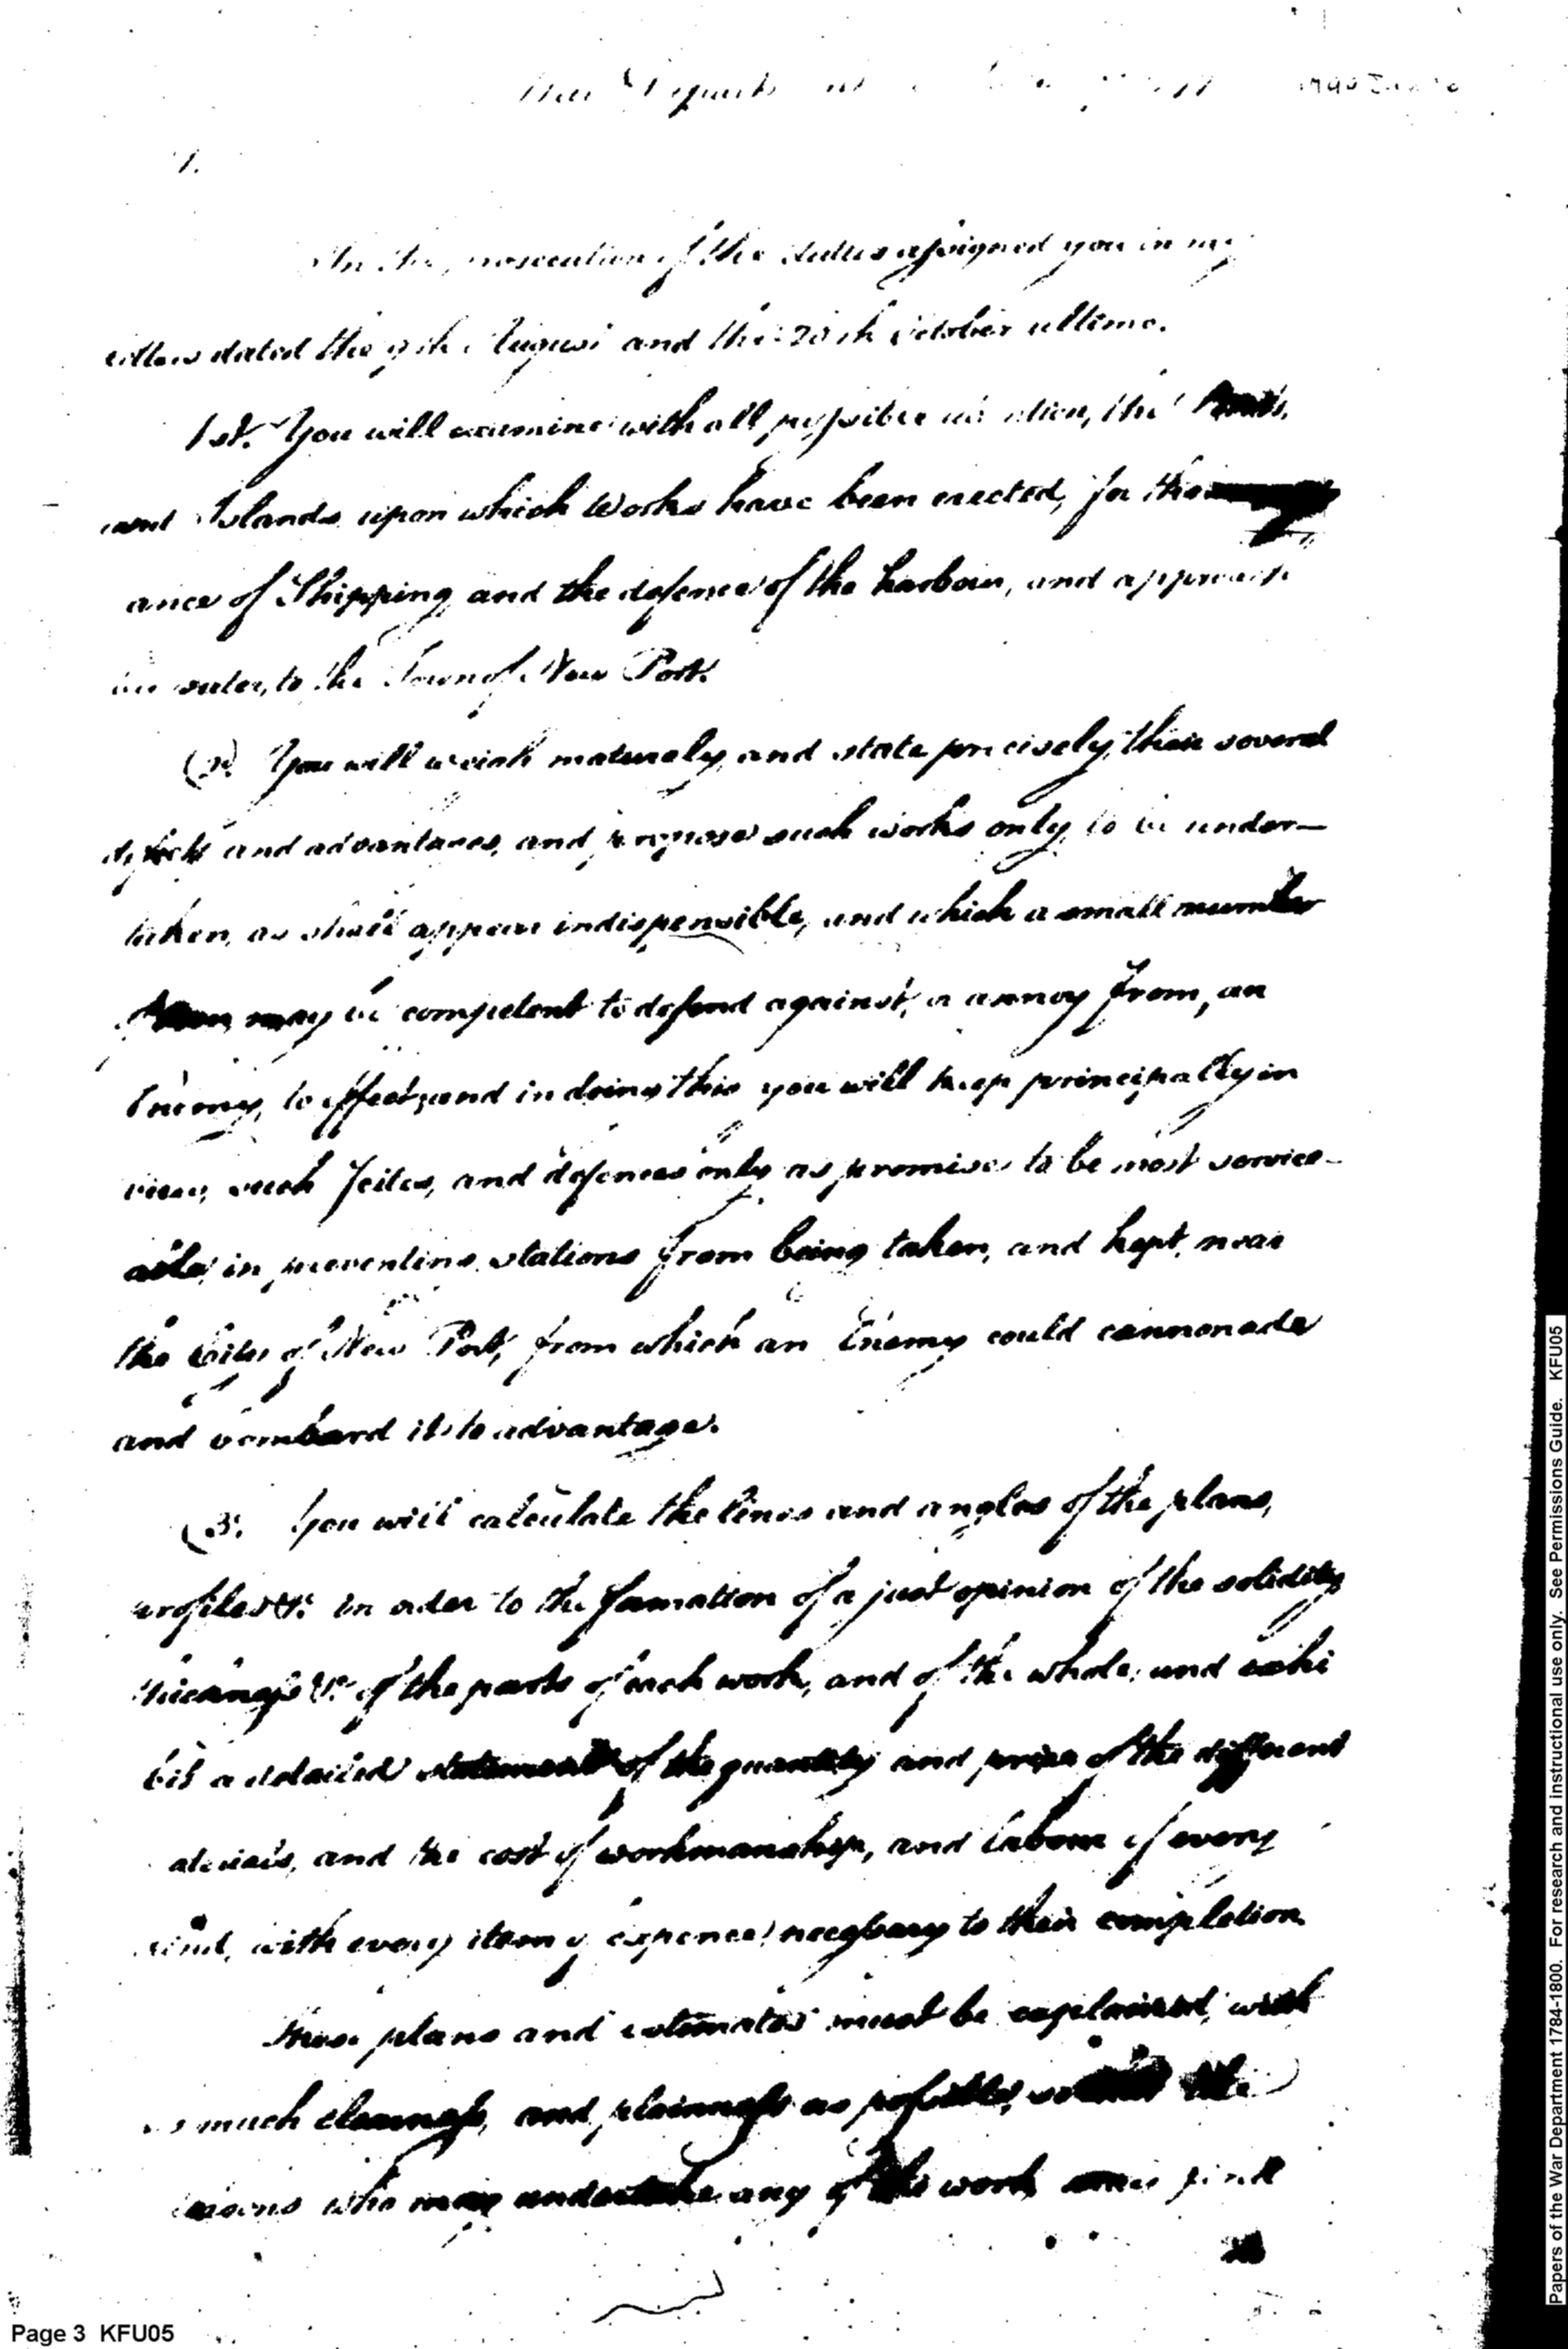 In the prosecution of the duties assigned you in my
letters dated the 9th August and the 20th October ultimo.
1st. You will examine with all possible attention, the Points,
and Islands upon which Works have been erected, for the annoy
ance of Shipping and the defence of the harbour, and approach
by water, to the Town of New Port.
(2d) You will weigh maturely, and state precisely, their several
defects and advantages, and propose such works only, to be under-
taken, as shall appear indispensible, and which a small number
of Men, may be competent to defend against, a annoy from, an
Enemy, to effect; and in doing this you will keep principally in
view, such Scites, and defences only as promise to be most service-
able, in preventing stations from being taken, and kept, near
the City of New Port, from which an Enemy could cannonade
and bombard it to advantage.
(3. You will calculate the lines and angles of the plans,
profiles &c. in order to the formation of a just opinion of the solidity
thickness &c. of the parts of each work, and of the whole; and exhi
bit a detailed statement of the quantity and price of the different
aterials, and the cost of workmanship, and labour of every
kind, with every item of expence, necessary to their completion.
These plans and estimates must be explained, with
as much clearness, and plainness as possible, so that the
persons who may undertake any of the work, may find
no
Page 3 KFU05
Papers of the War Department 1784-1800. For research and instructional use only. See Permissions Guide. KFU05